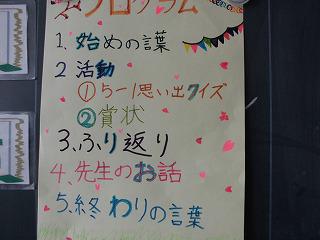 プログラム
1.始めの言葉
2 活動
①5-1思い出クイズ
②賞状
3.ふり返り
4.先生のお話
5.終わりの言葉